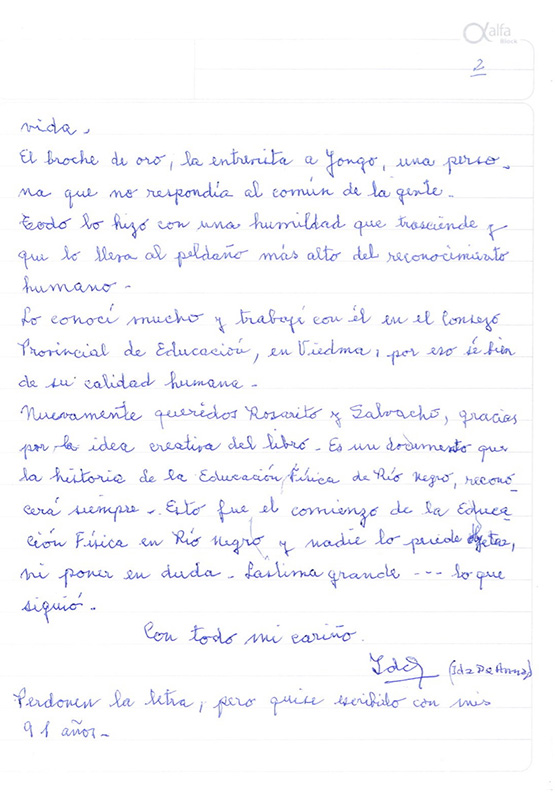 alfa
2
vida.
El broche de oro, la entrevista a Yongo, una perso-
na que no respondía al común de la gente.
Todo lo hizo con una humildad que trasciende y
que lo lleva al peldaño más alto del reconocimiento
humano.
Lo conocí mucho y trabajé con él en el Consejo
Provincial de Educación, en Viedma, por eso sé bien
de su calidad humana.
Nuevamente queridos Rosarito y Salvacho, gracias
por la idea creativa del libro. Es un documento que
la historia de la Educación Física de Río Negro, recono-
cerá siempre. Esto fue el comienzo de la Educa-
ción Física en Río Negro y nadie lo puede objetar,
ni poner en duda. Lástima grande --- lo que
siguió.
Con todo mi cariño.
Ida (Ida De Anna)
Perdonen la letra, pero quise escribirlo con mis
91 años.